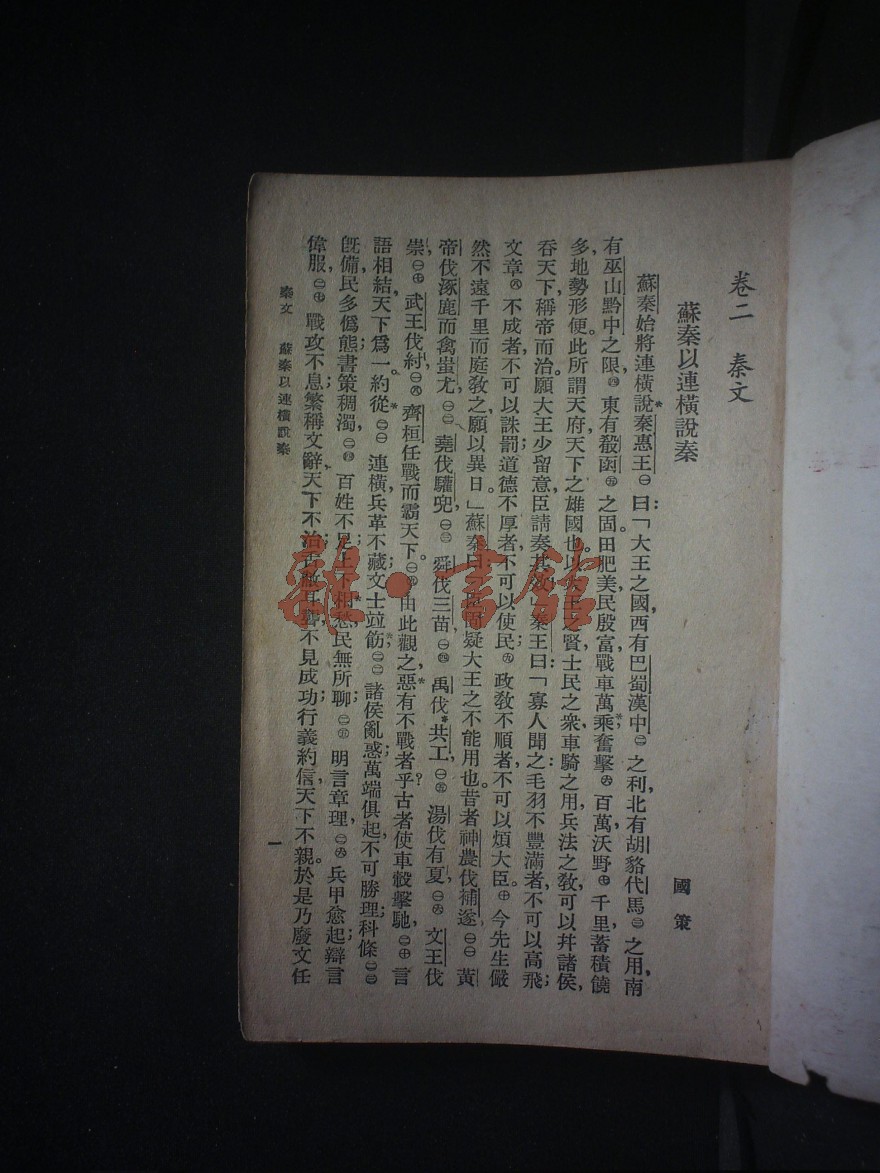 卷二　秦文
蘇秦以連橫說秦
國策
蘇秦始將連橫說秦惠王㊀曰：「大王之國，西有巴蜀漢中㊁之利，北有胡貉代馬㊂之用，南
有巫山黔中之限㊃，東有殽函㊄之固。田肥美，民殷富，戰車萬乘，奮擊㊅百萬，沃野㊆千里，蓄積饒
多，地勢形便。此所謂天府，天下之雄國也。以大王之賢，士民之衆，車騎之用，兵法之敎，可以幷諸侯，
吞天下，稱帝而治。願大王少留意，臣請奏其效。」秦王曰：「寡人聞之：毛羽不豐滿者，不可以高飛；
文章㊇不成者，不可以誅罰；道德不厚者，不可以使民㊈；政敎不順者，不可以煩大臣。㊉今先生儼
然不遠千里而庭敎之，願以異日。」蘇秦曰：疑大王之不能用也。昔者神農伐補遂㊀㊀，黃
帝伐涿鹿而禽蚩尤，㊀㊁堯伐驩兜，㊀㊂舜伐三苗，㊀㊃禹伐共工，㊀㊄湯伐有夏，㊀㊅文王伐
崇，㊀㊆武王伐紂，㊀㊇齊桓任戰而霸天下。㊀㊈由此觀之，惡有不戰者乎？古者使車轂擊馳，㊁㊉言
語相結，天下爲一。約從㊁㊀連橫，兵革不藏；文士竝飭，㊁㊁諸侯亂惑；萬端俱起，不可勝理；科條㊁㊂
旣備，民多僞態；書策稠濁，㊁㊃百姓不足；上下相愁，民無所聊；㊁㊄明言章理，㊁㊅兵甲愈起；辯言
偉服，㊁㊆戰攻不息；繁稱文辭，天下不治；舌敝耳聾，不見成功；行義約信，天下不親。於是乃廢文任
秦文　蘇秦以連橫說秦
一
雜·書館